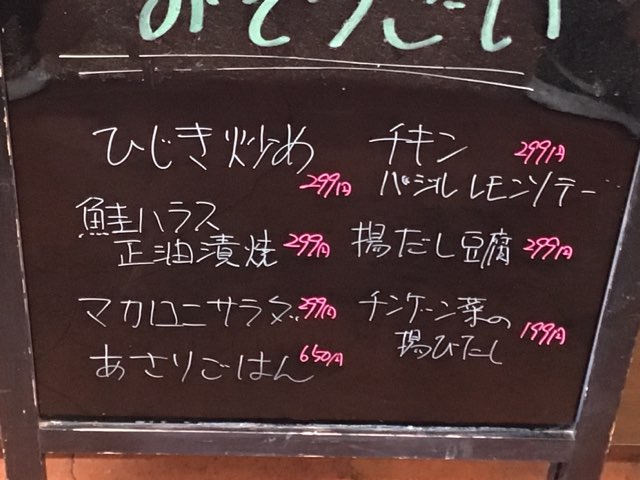 ひじき炒め
299円
鮭ハラス
正油漬焼 299円
マカロニサラダ 299円
あさりごはん 650円
チキン 299円
バジルレモンソテー
揚だし豆腐 299円
チンゲーン菜の
揚びたし 199円